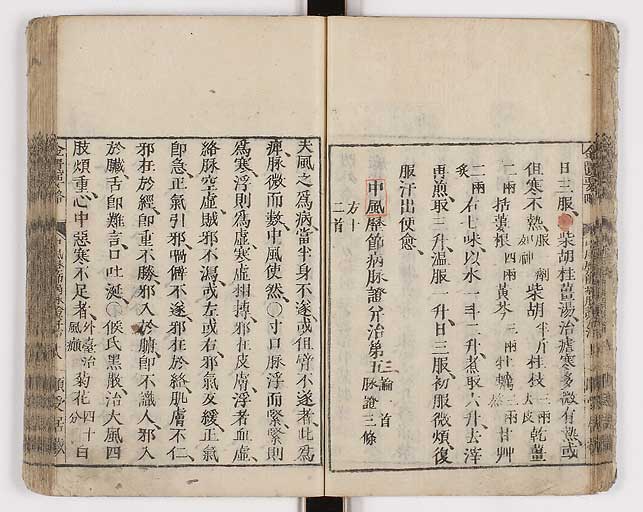 日三服柴胡桂薑湯治瘧寒多微有熱或
但寒不熱服一劑如神柴胡半斤桂枝三兩去皮乾薑
二兩括蔞根四兩黃芩三兩牡蠣三兩甘艸
二兩炙右七味以水一斗二升煮取六升去滓
再煎取三升溫服一升日三服初服微煩復
服汗出便愈
中風歷節病脉證并治第五論一首脉證三條
方十二首
夫風之為病當半身不遂或但臂不遂者此為
痺脉微而數中風使然○寸口脉浮而緊緊則
為寒浮則為虛寒虛相摶邪在皮膚浮者血虛
絡脉空虛賊邪不瀉或左或右邪氣反緩正氣
即急正氣引邪喎僻不遂邪在於絡肌膚不仁
邪在於經即重不勝邪入於腑即不識人邪入
於臟舌即難言口吐涎○侯氏黑散治大風四
肢煩重心中惡寒不足者外臺治風癲菊花四十分白